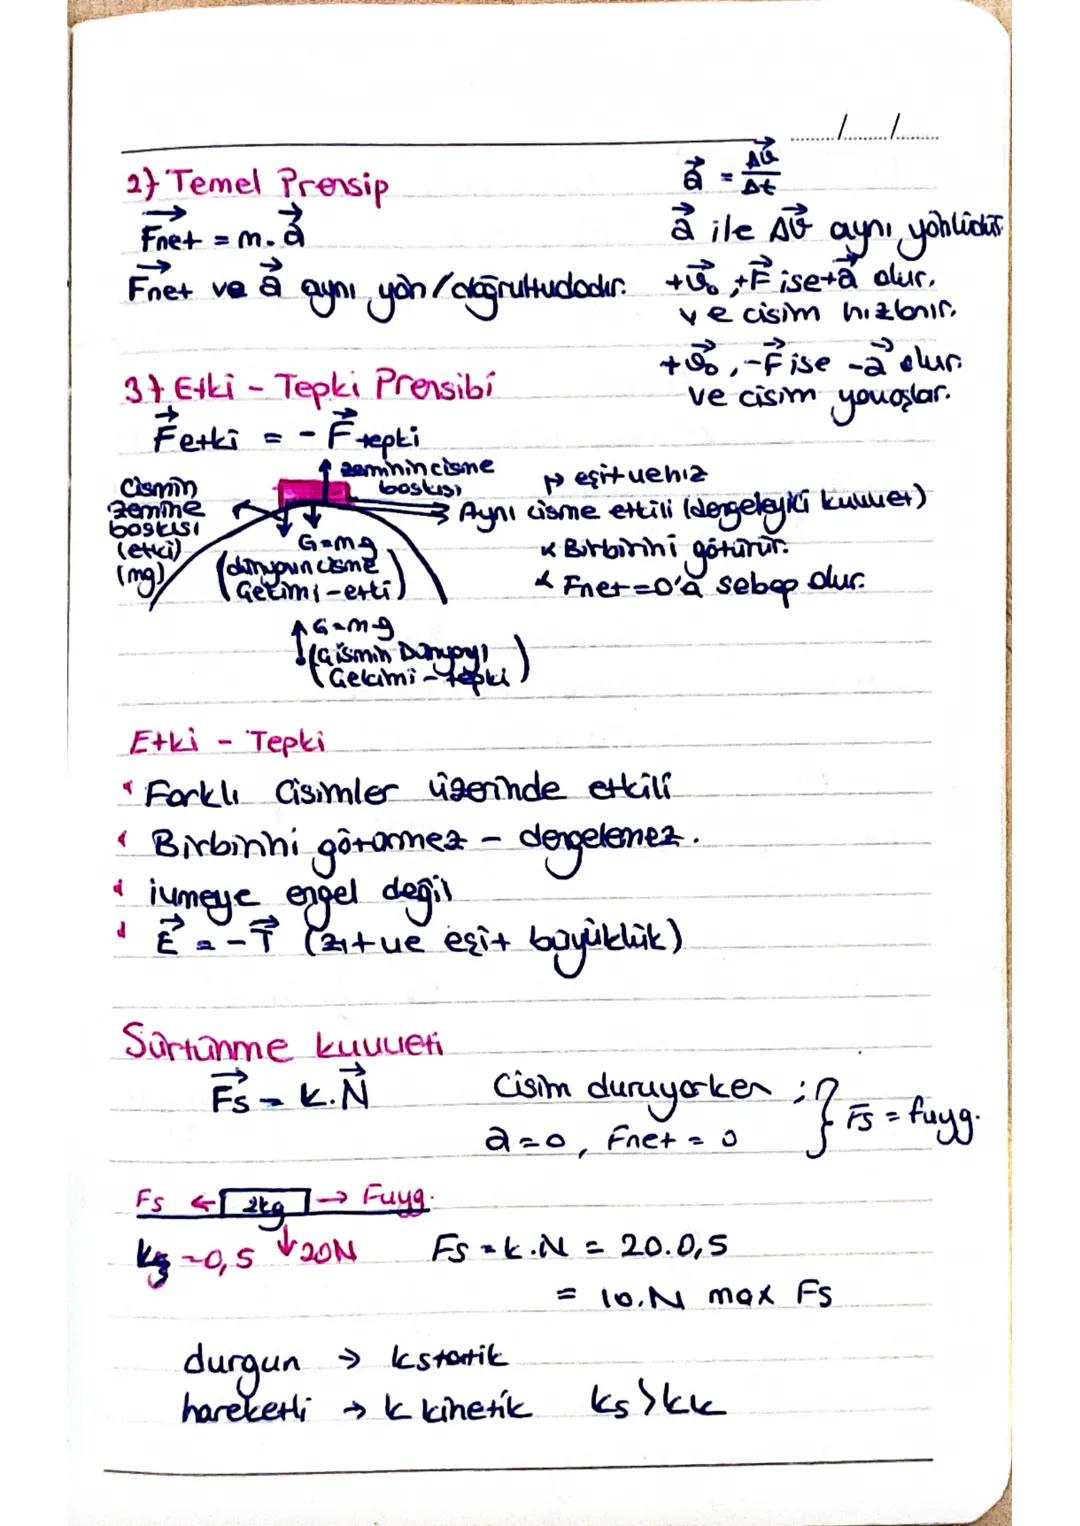 ....../....../......
2) Temel Prensip
Fnet = m.a
Fnet ve a aynı yön/doğrultudadır.
a = Δϑ/Δt
a ile Δϑ aynı yönlüdür.
+ϑ₀, +F ise +a olur.
ve cisim hızlanır.
+ϑ₀, -F ise -a olur.
ve cisim yavaşlar.
3) Etki - Tepki Prensibi
Fetki = - Ftepki
zeminin cisme
baskısı
Cismin
zemine
baskısı
(etki)
(mg)
G=mg
(dünyanın cisme
Çekimi-etki)
↑G=mg
(Cismin Dünyayı
Çekimi - tepki)
→ eşit ve hız
Aynı cisme etkili (dengeleyici kuvvet)
Birbirini götürür.
Fnet=0'a sebep olur.
Etki - Tepki
Farklı Cisimler üzerinde etkili
Birbirini götürmez - dengelemez.
ivmeye engel değil
E = -T (zıt ve eşit büyüklük)
Sürtünme kuvveti
Fs = k.N
Cisim duruyorken ;
a=0, Fnet = 0
} Fs = fuyg.
Fs ← 2kg → Fuyg.
ks=0,5 ↓20N
Fs = k.N = 20.0,5
= 10.N max Fs
durgun → kstatik
hareketli → k kinetik ks>kk